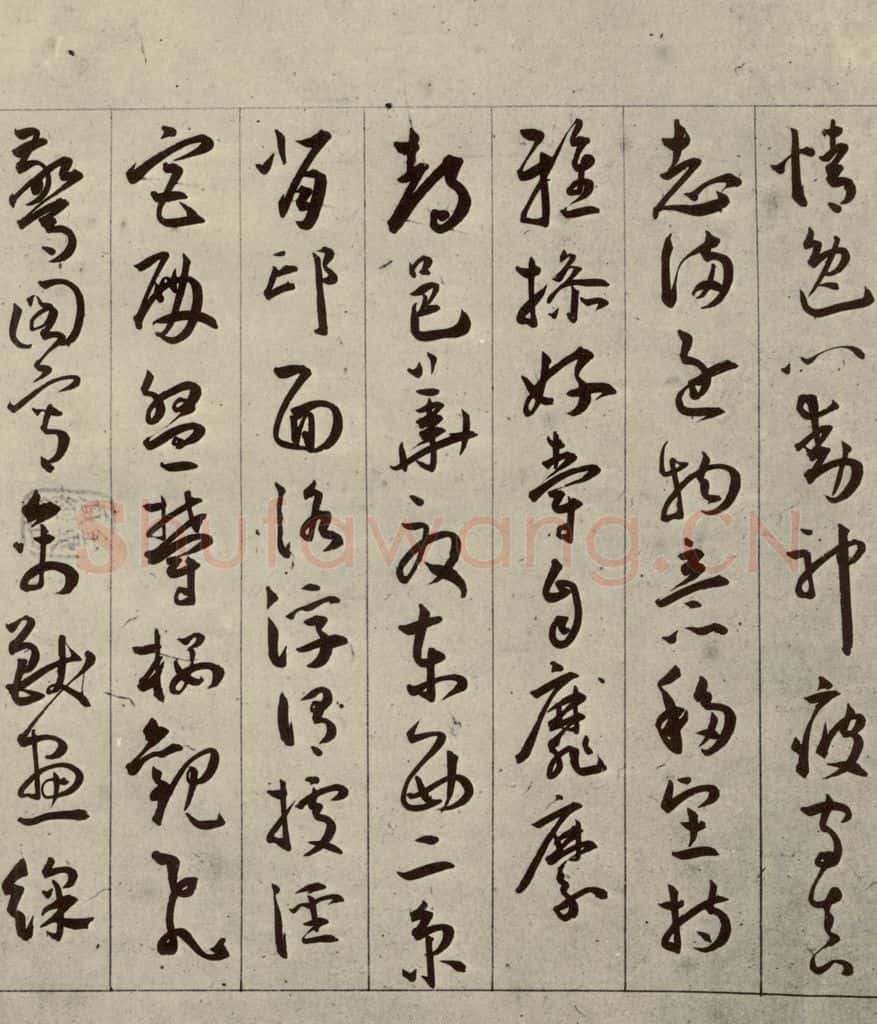 情逸心動神疲守真
志滿逐物意移堅持
雅操好爵自靡縻
都邑華夏東西二京
背邙面洛浮渭據涇
宮殿盤鬱樓觀飛
驚圖寫禽獸畫綵
Shufawang.CN